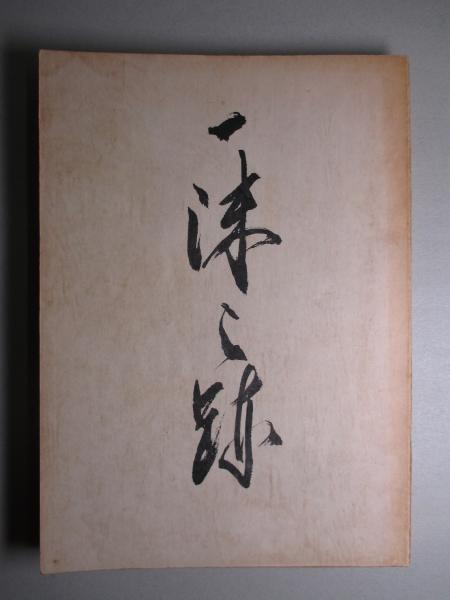 一沫之跡